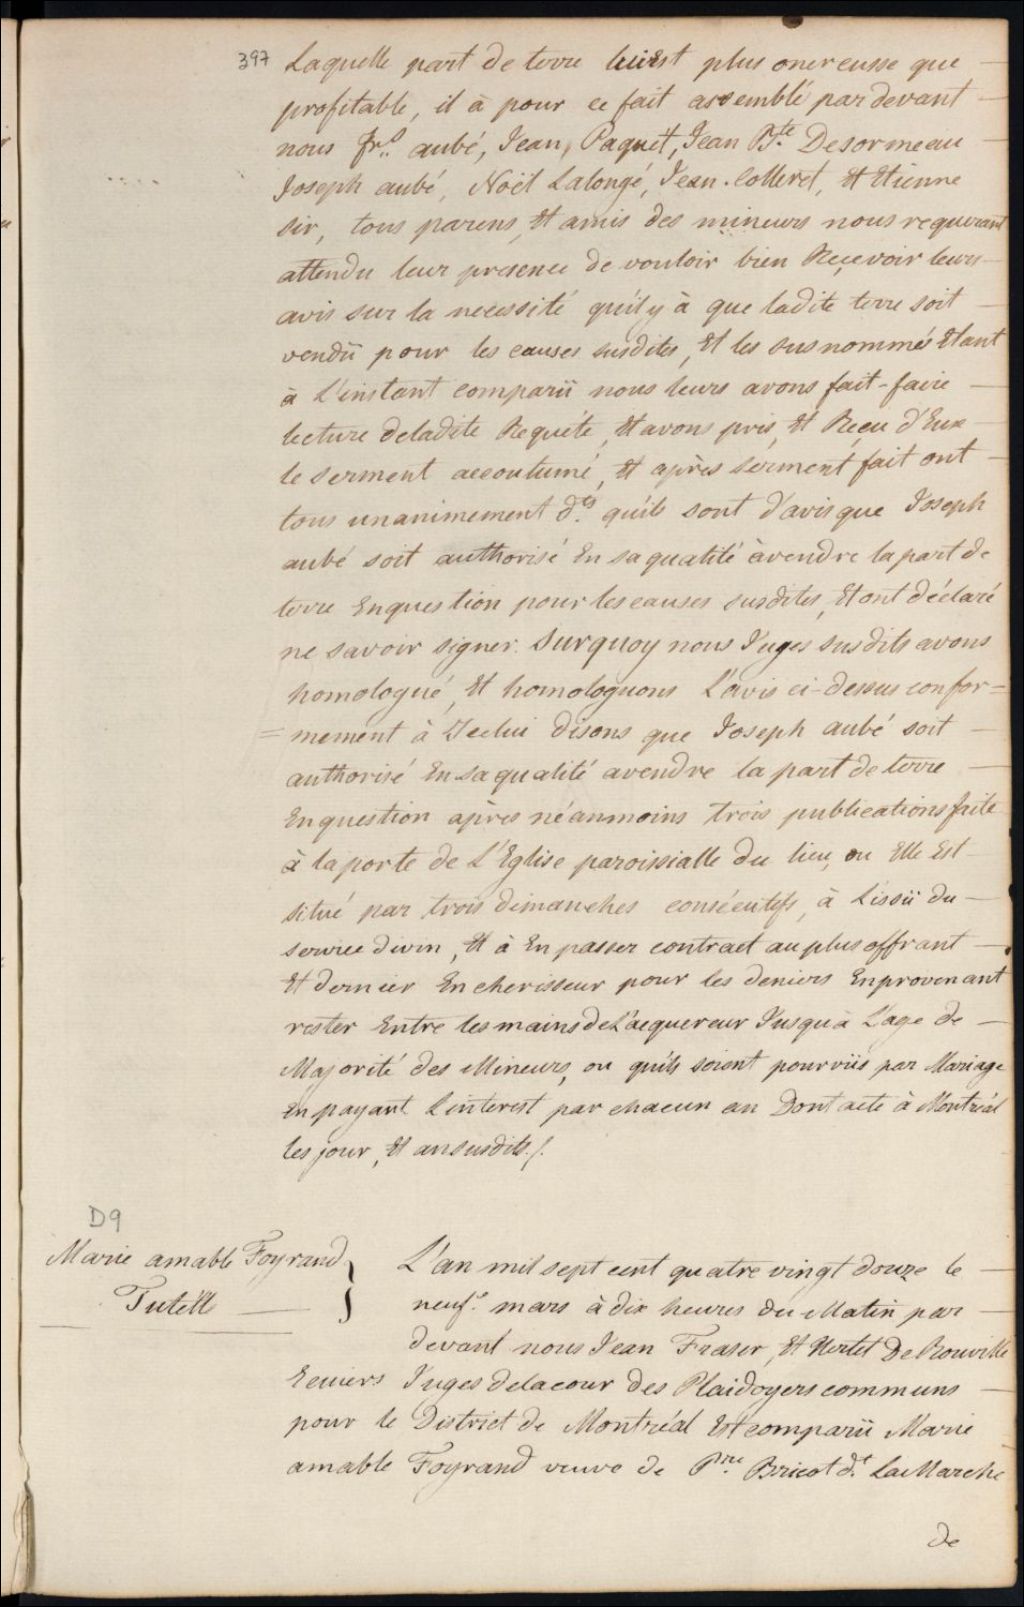 397 Laquelle part de terre lui est plus onereusse que
profitable, il à pour ce fait assemblé par devant
nous frs. aubé, Jean, Paquet, Jean Bte. Desormeau
Joseph aubé, Noël Lalongé, Jean Colleret, Et Etienne
sir, tous parens, Et amis des mineurs nous requerant
attendu leur presence de vouloir bien Reçevoir leurs
avis sur la necessité quil y à que ladite terre soit
vendü pour les causes susdites, Et les sus nommés Etant
à L'instant comparü nous leurs avons fait-faire
lecture deladite Requéte, Et avons pris, Et Reçu d'Eux
le serment accoutumé, Et après serment fait ont
tous unanimement dts. quils sont d'avis que Joseph
aubé soit authorisé En sa qualité àvendre la part de
terre Enquestion pour les causes susdites, Et ont déclaré
ne savoir signer. Surquoy nous Juges susdits avons
homologué, Et homologuons L'avis ci-dessus confor=
=mement à Jcelui disons que Joseph aubé soit
authorisé En sa qualité avendre la part de terre
Enquestion après néanmoins trois publications faite
à la porte de L'Eglise paroissialle du lieu, ou Elle Est
situé par trois dimanches consécutifs, à Lissü du
service divin, Et à En passer contract au plus offrant
Et dernier Encherisseur pour les deniers Enprovenant
rester Entre les mains de L'acquereur Jusquà L'age de
Majorité des Mineurs, ou quils soient pourvüs par Mariage
En payant Linterest par chacun an Dont acte à Montréal
les jour, Et an susdits./.
D9
Marie amable Foyrand
Tutelle
L'an mil sept cent quatre vingt douze le
neuf. mars à dix heures du Matin par
devant nous Jean Fraser, Et Hertel De Rouville
Ecuiers Juges delacour des Plaidoyers communs
pour le District de Montréal Est comparü Marie
amable Foyrand veuve de Prre Bricot dt. LaMarche
de